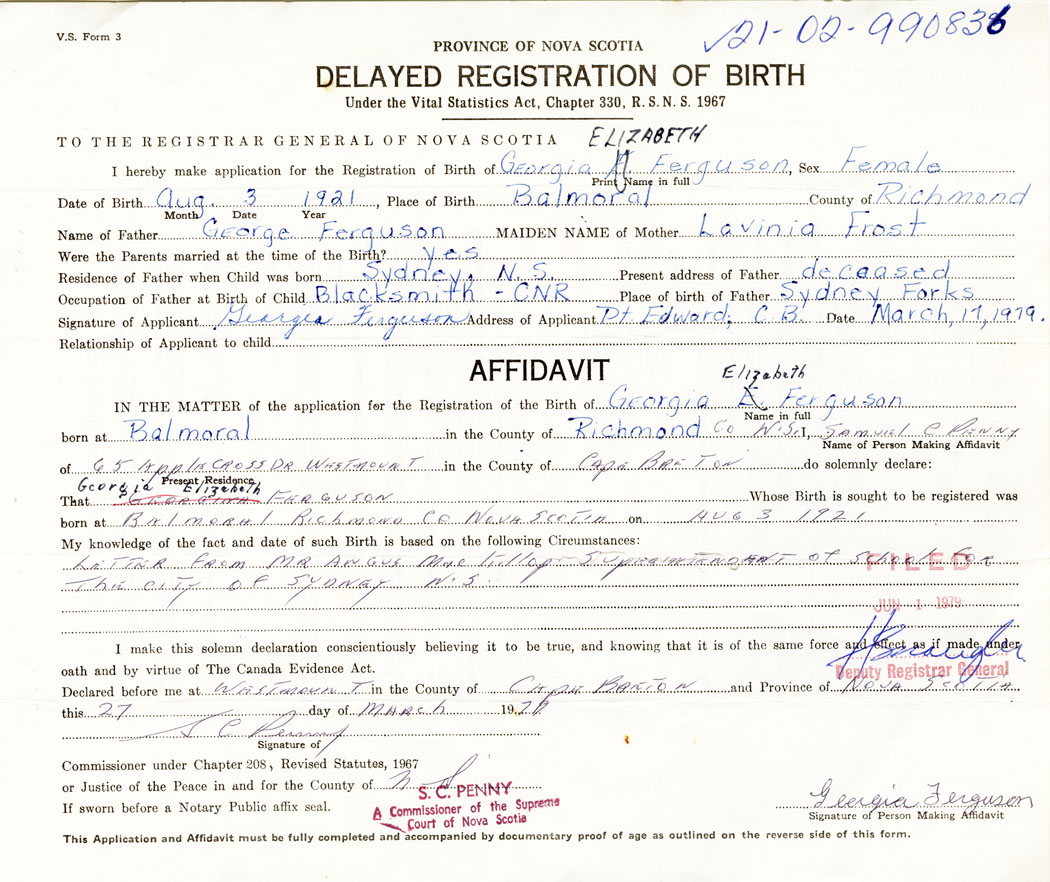 V.S. Form 3
21-02-990836
PROVINCE OF NOVA SCOTIA
DELAYED REGISTRATION OF BIRTH
Under the Vital Statistics Act, Chapter 330, R. S. N. S. 1967
TO THE REGISTRAR GENERAL OF NOVA SCOTIA
ELIZABETH
I hereby make application for the Registration of Birth of Georgia Ferguson, Sex Female
Print Name in full
Date of Birth Aug. 3 1921, Place of Birth Balmoral County of Richmond
Month Date Year
Name of Father George Ferguson MAIDEN NAME of Mother Lavinia Frost
Were the Parents married at the time of the Birth? yes
Residence of Father when Child was born Sydney, N. S. Present address of Father deceased
Occupation of Father at Birth of Child Blacksmith - CNR Place of birth of Father Sydney Forks
Signature of Applicant Georgia Ferguson Address of Applicant Pt. Edward, C.B. Date March, 17, 1979.
Relationship of Applicant to child
AFFIDAVIT
Elizabeth
IN THE MATTER of the application for the Registration of the Birth of Georgia E. Ferguson
Name in full
born at Balmoral in the County of Richmond Co N.S. I, SAMUEL C PENNY
Name of Person Making Affidavit
of 65 APPLECROSS DR WESTMOUNT in the County of CAPE BRETON do solemnly declare:
Present Residence
Georgia Elizabeth
That FERGUSON Whose Birth is sought to be registered was
born at BALMORAL RICHMOND CO NOVA SCOTIA on AUG 3 1921
My knowledge of the fact and date of such Birth is based on the following Circumstances:
LETTER FROM MR ANGUS MacKillop SUPERINTENDENT OF SCHOOLS FOR
THE CITY OF SYDNEY N.S.
FILED
JUN 1 1979
I make this solemn declaration conscientiously believing it to be true, and knowing that it is of the same force and effect as if made under
oath and by virtue of The Canada Evidence Act.
Deputy Registrar General
Declared before me at WESTMOUNT in the County of CAPE BRETON and Province of NOVA SCOTIA
this 27 day of MARCH 1979
S C Penny
Signature of
Commissioner under Chapter 208, Revised Statutes, 1967
or Justice of the Peace in and for the County of N S
If sworn before a Notary Public affix seal.
S. C. PENNY
A Commissioner of the Supreme
Court of Nova Scotia
Georgia Ferguson
Signature of Person Making Affidavit
This Application and Affidavit must be fully completed and accompanied by documentary proof of age as outlined on the reverse side of this form.